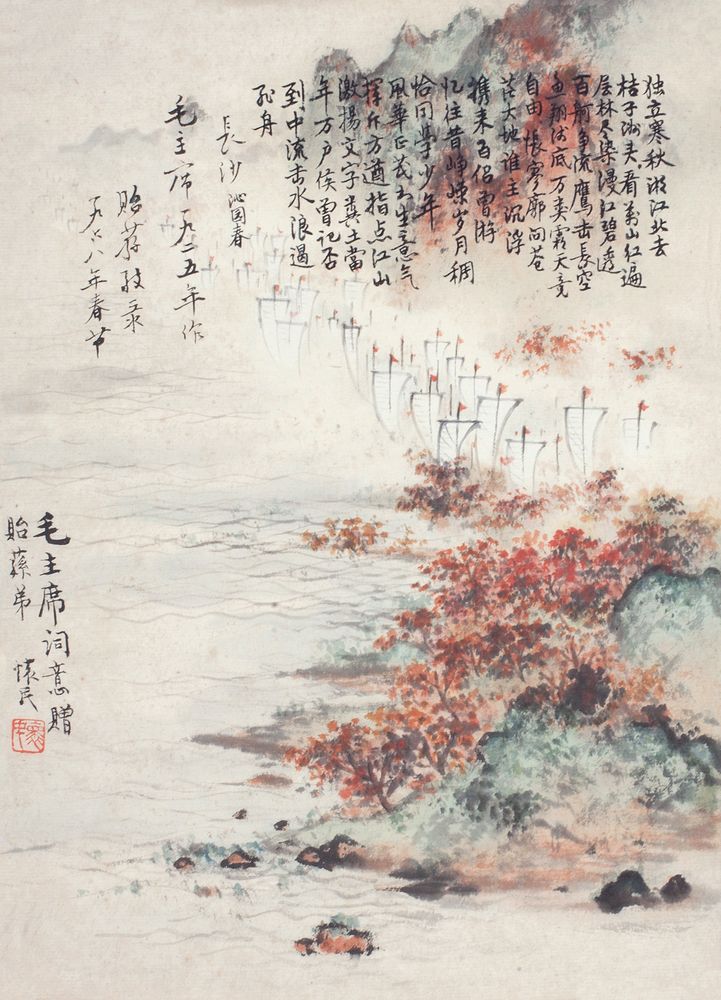 独立寒秋湘江北去
桔子洲头看萬山红遍
层林尽染漫江碧透
百舸争流鹰击長空
鱼翔浅底万类霜天竞
自由悵寥廓问苍
茫大地谁主沉浮
携来百侣曾游
忆往昔峥嵘岁月稠
恰同学少年
風華正茂书生意气
揮斥方遒指点江山
激揚文字粪土當
年万户侯曾记否
到中流击水浪遏
飛舟
長沙 沁园春
毛主席一九二五年作
贻荪敬录
一九六八年春节
毛主席词意赠
贻蓀弟 懷民